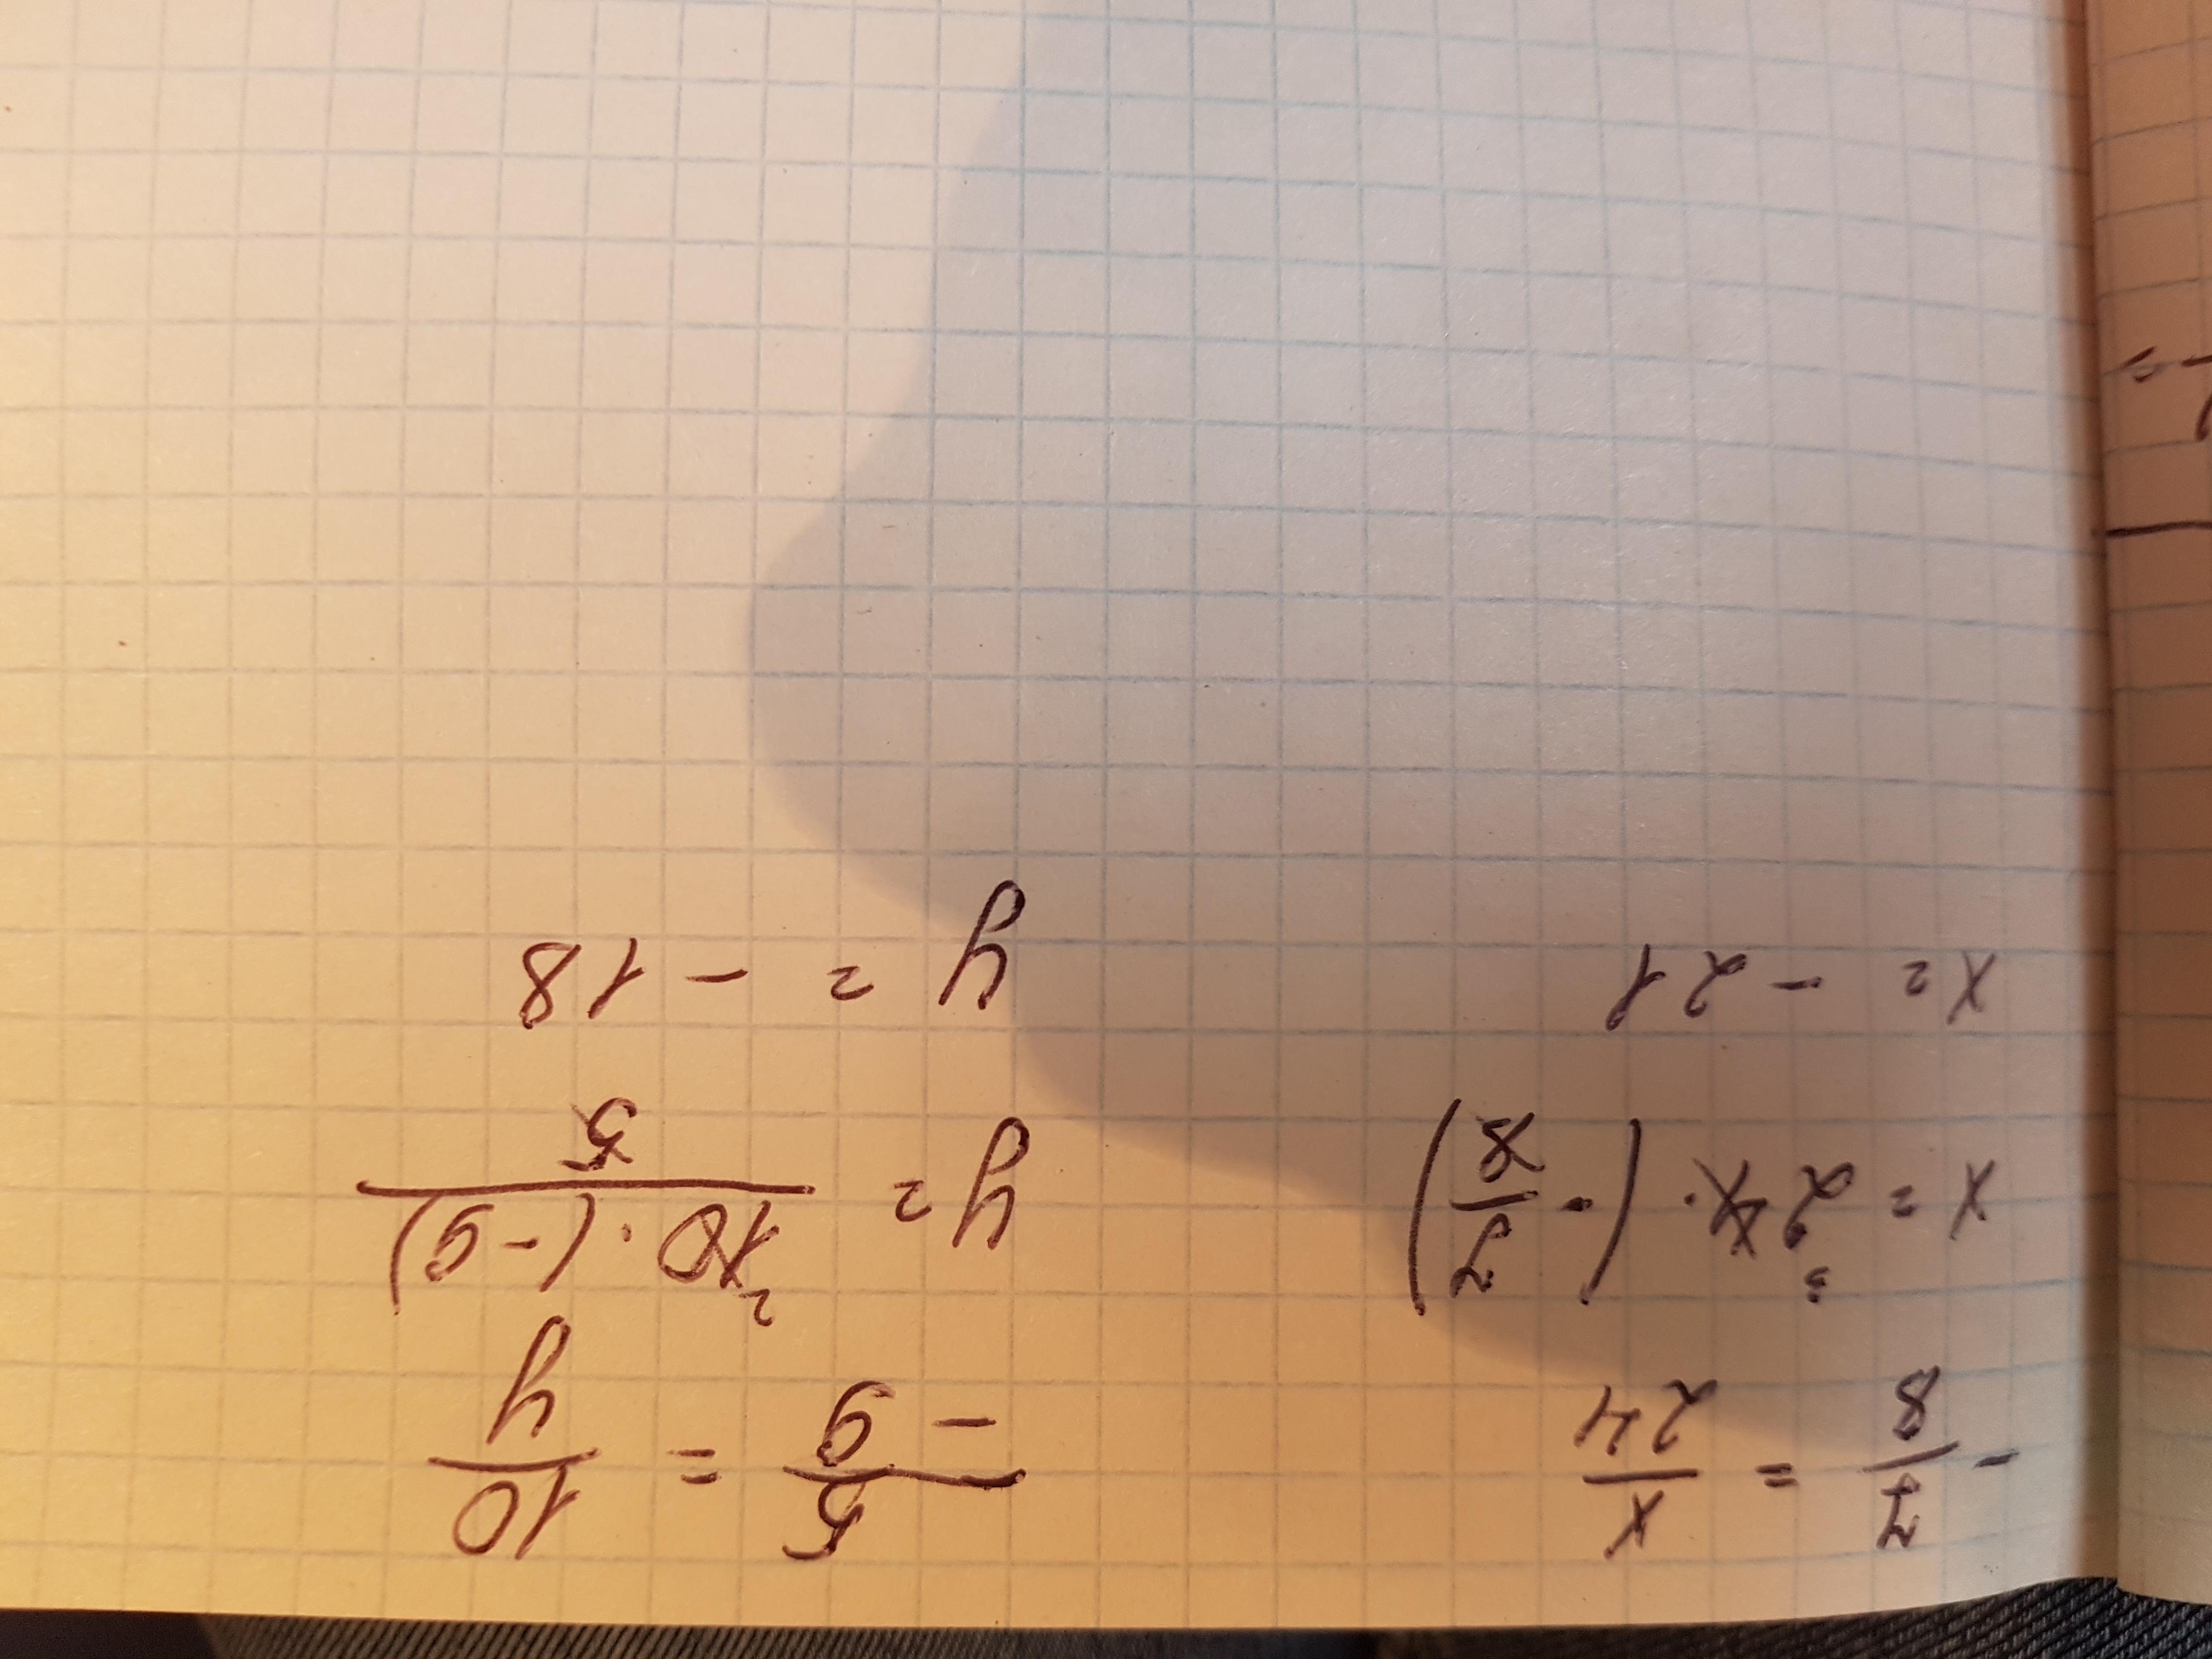 - 7/8 = x/24
x = 24 · (- 7/8)
x = - 21
5/-9 = 10/y
y = 10 · (-9)/5
y = - 18